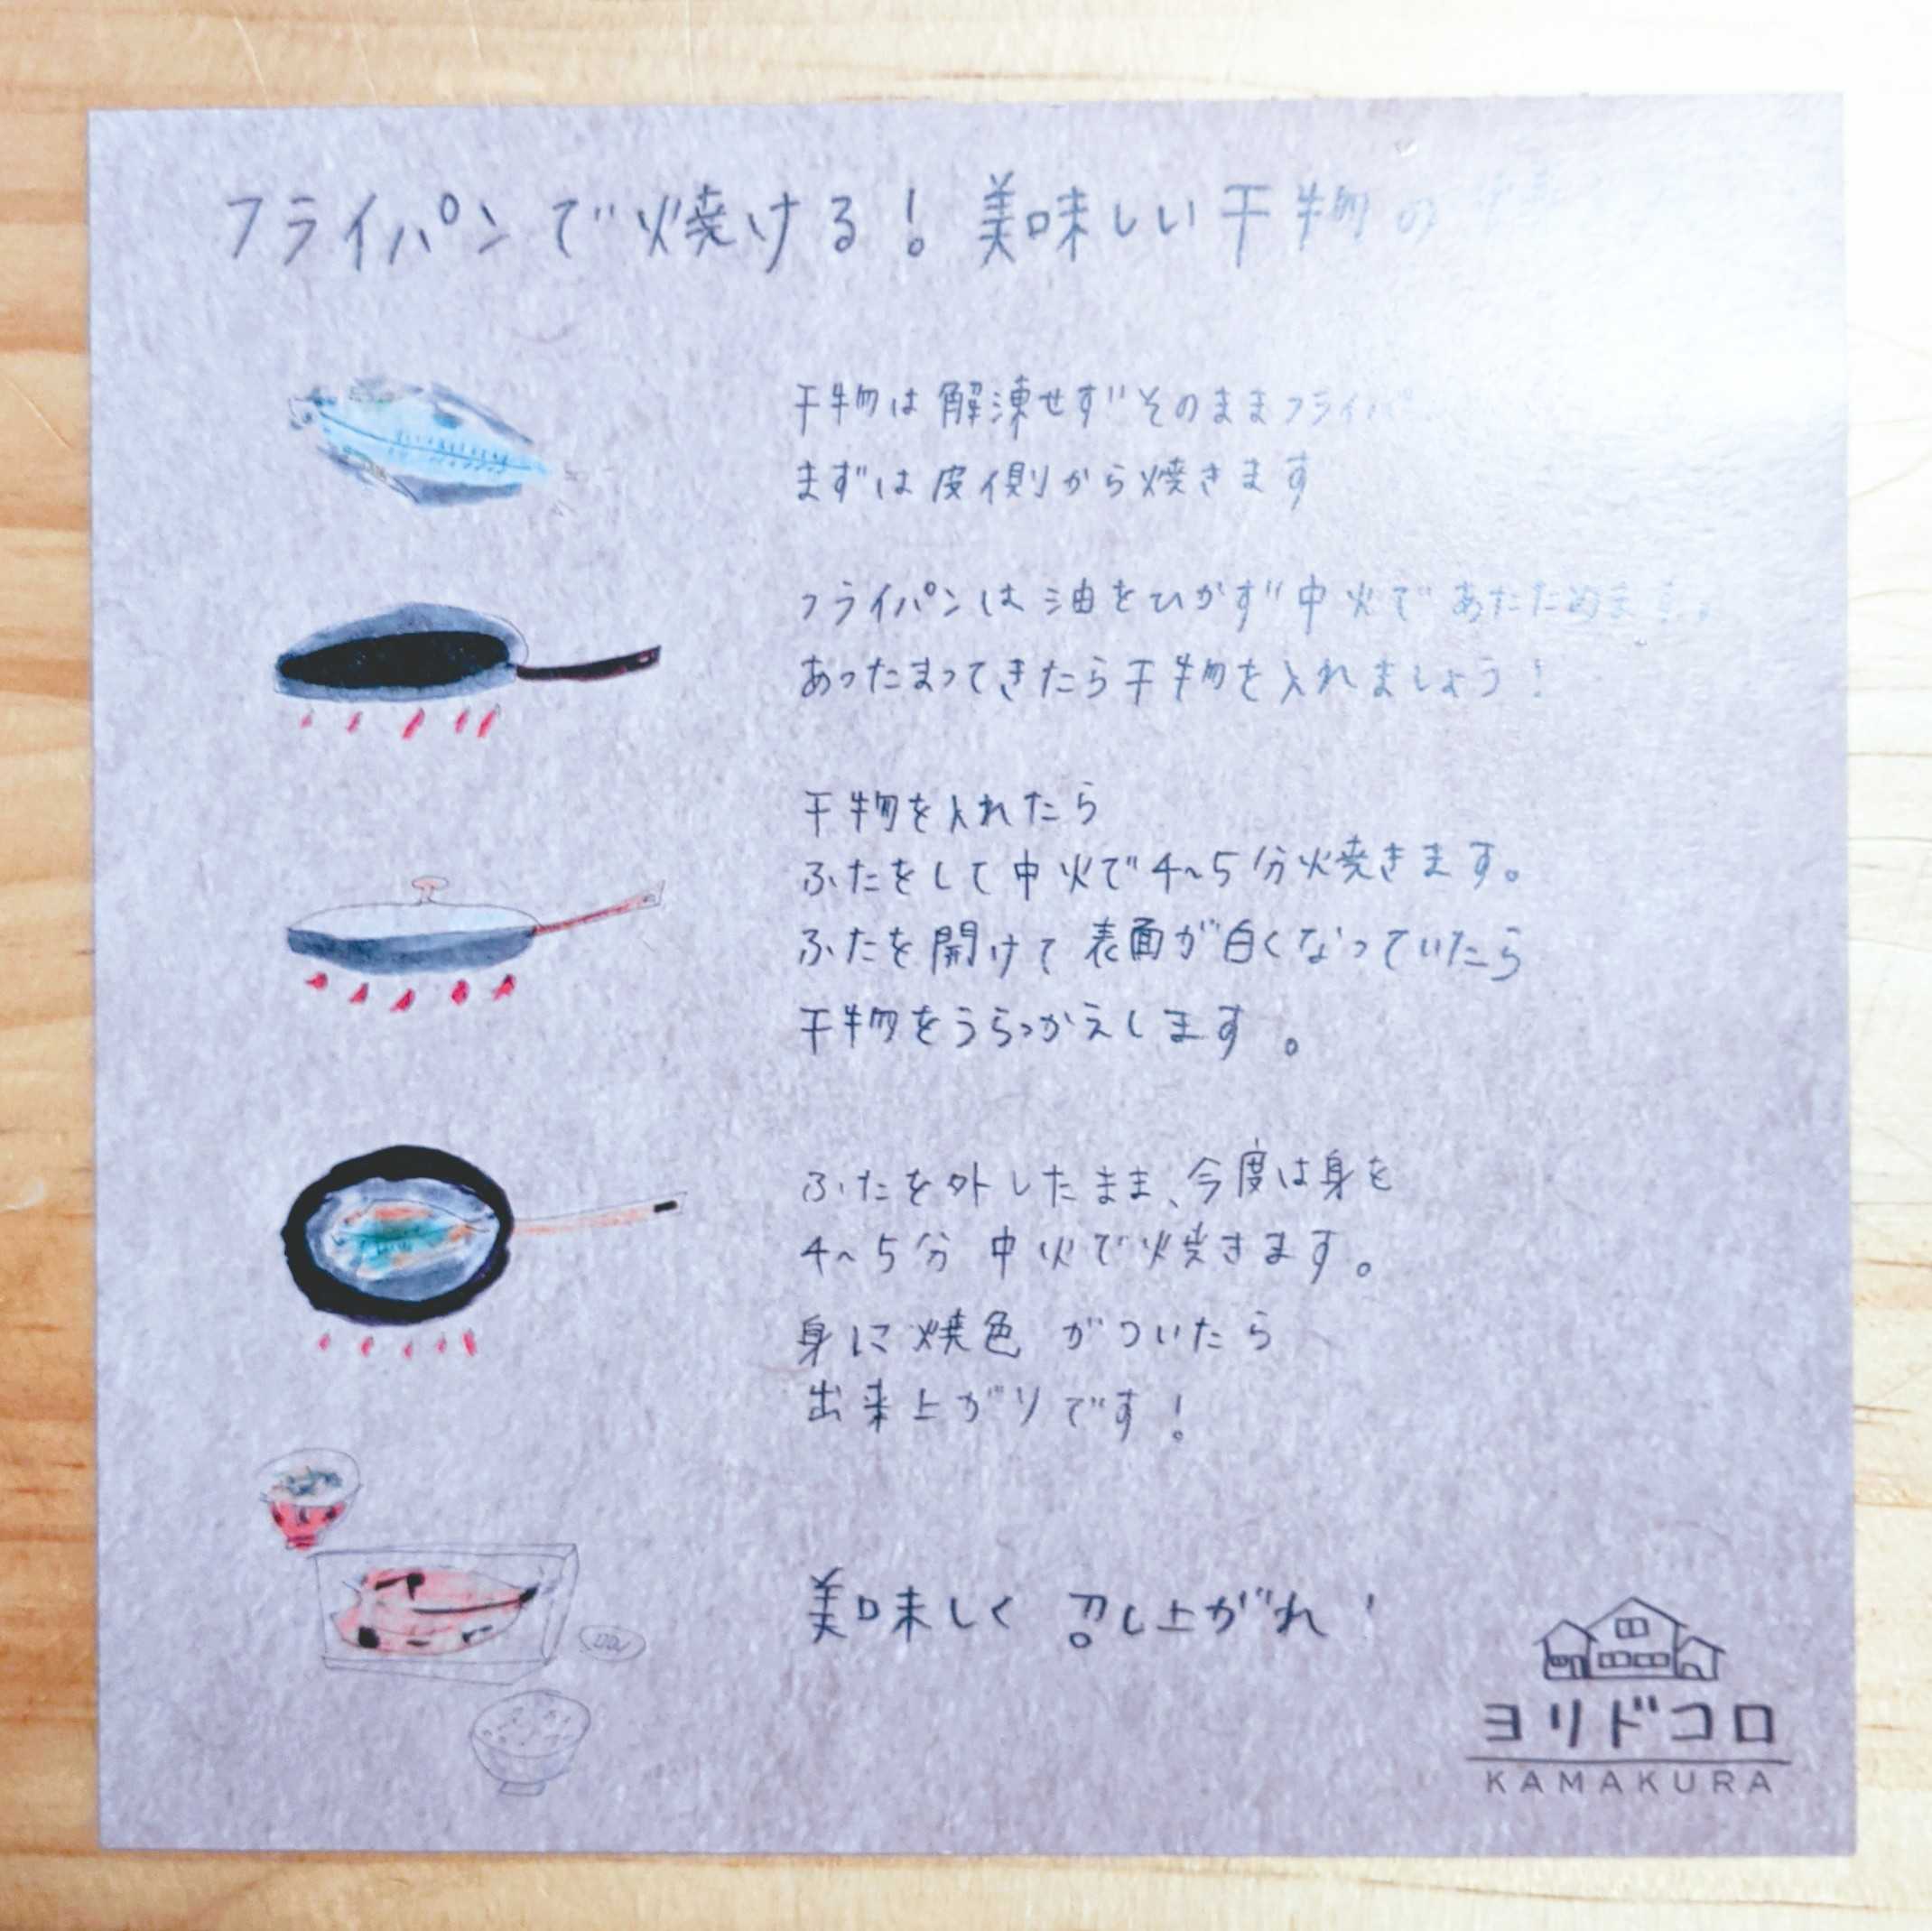 フライパンで焼ける！美味しい干物の
干物は解凍せずそのままフライパ
まずは皮側から焼きます
フライパンは油をひかず中火であたためます。
あったまってきたら干物を入れましょう！
干物を入れたら
ふたをして中火で4~5分焼きます。
ふたを開けて表面が白くなっていたら
干物をうらっかえします。
ふたを外したまま、今度は身を
4~5分 中火で焼きます。
身に焼色がついたら
出来上がりです！
美味しく 召し上がれ！
ヨリドコロ
KAMAKURA